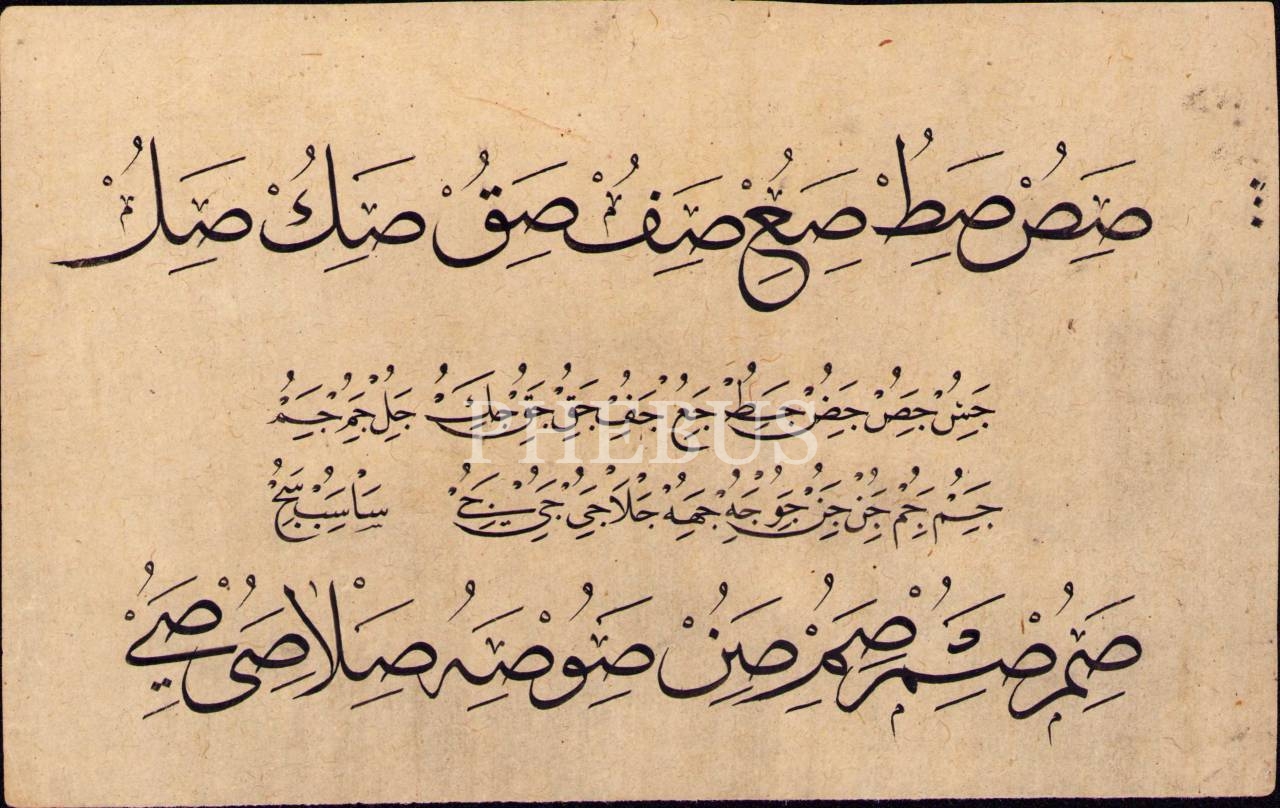 صص صط صع صف صق صك صل
جس جص جض جط جع جف جق جق جك جل جم جم
جم جم جن جن جو جه جهه جلا جى جى جے سا سب سج
صم صم صم صن صو صه صلا صى صے
PHEBUS